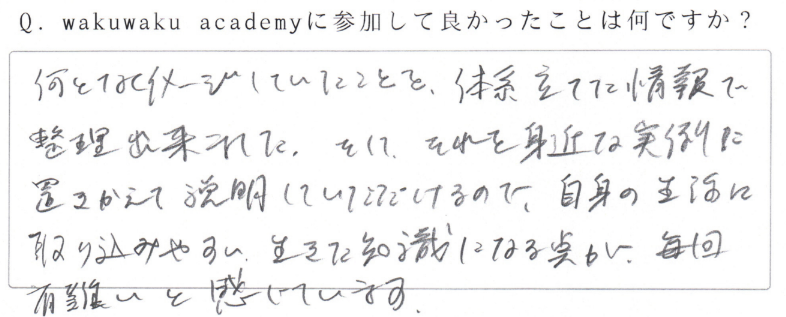 Q. wakuwaku academyに参加して良かったことは何ですか？
何となくイメージしていたことを、体系立てた情報で
整理出来ました。そして、それを身近な実例に
置きかえて説明していただけるので、自身の生活に
取り込みやすい、生きた知識になる点が、毎回
有難いと感じています。